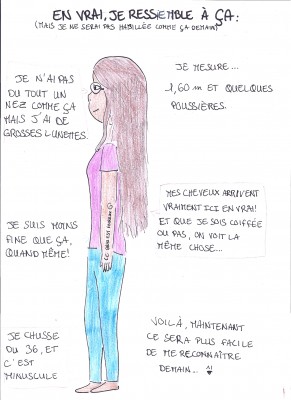 EN VRAI, JE RESSEMBLE À ÇA:
(MAIS JE NE SERAI PAS HABILLÉE COMME ÇA DEMAIN)
JE N'AI PAS
DU TOUT UN
NEZ COMME ÇA
MAIS J'AI DE
GROSSES LUNETTES.
JE MESURE...
1,60 m ET QUELQUES
POUSSIÈRES.
MES CHEVEUX ARRIVENT
VRAIMENT ICI EN VRAI!
ET QUE JE SOIS COIFFÉE
OU PAS, ON VOIT LA
MÊME CHOSE...
JE SUIS MOINS
FINE QUE ÇA,
QUAND MÊME!
JE CHAUSSE
DU 36, ET
C'EST
MINUSCULE
VOILÀ, MAINTENANT
CE SERA PLUS FACILE
DE ME RECONNAÎTRE
DEMAIN... ^^